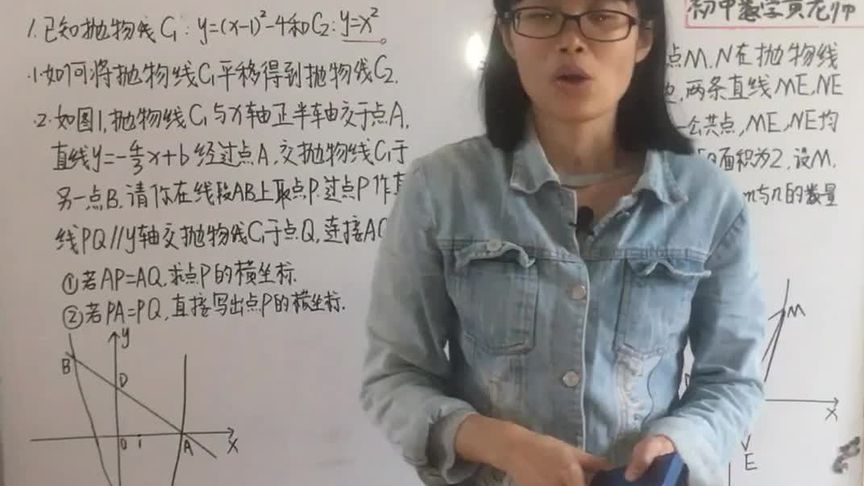 初中数学黄老师
1.已知抛物线C₁:y=(x-1)²-4和C₂:y=x²
·1·如何将抛物线C₁平移得到抛物线C₂.
·2·如图1,抛物线C₁与x轴正半轴交于点A,
直线y=-4/3x+b经过点A,交抛物线C₁于
另一点B.请你在线段AB上取点P.过点P作直
线PQ//y轴交抛物线C₁于点Q,连接AQ
①若AP=AQ,求点P的横坐标.
②若PA=PQ,直接写出点P的横坐标.
y
B
D
O
1
A
x
点M、N在抛物线
两条直线ME、NE
公共点,ME、NE均
面积为2,设M、
m与n的数量
M
x
E